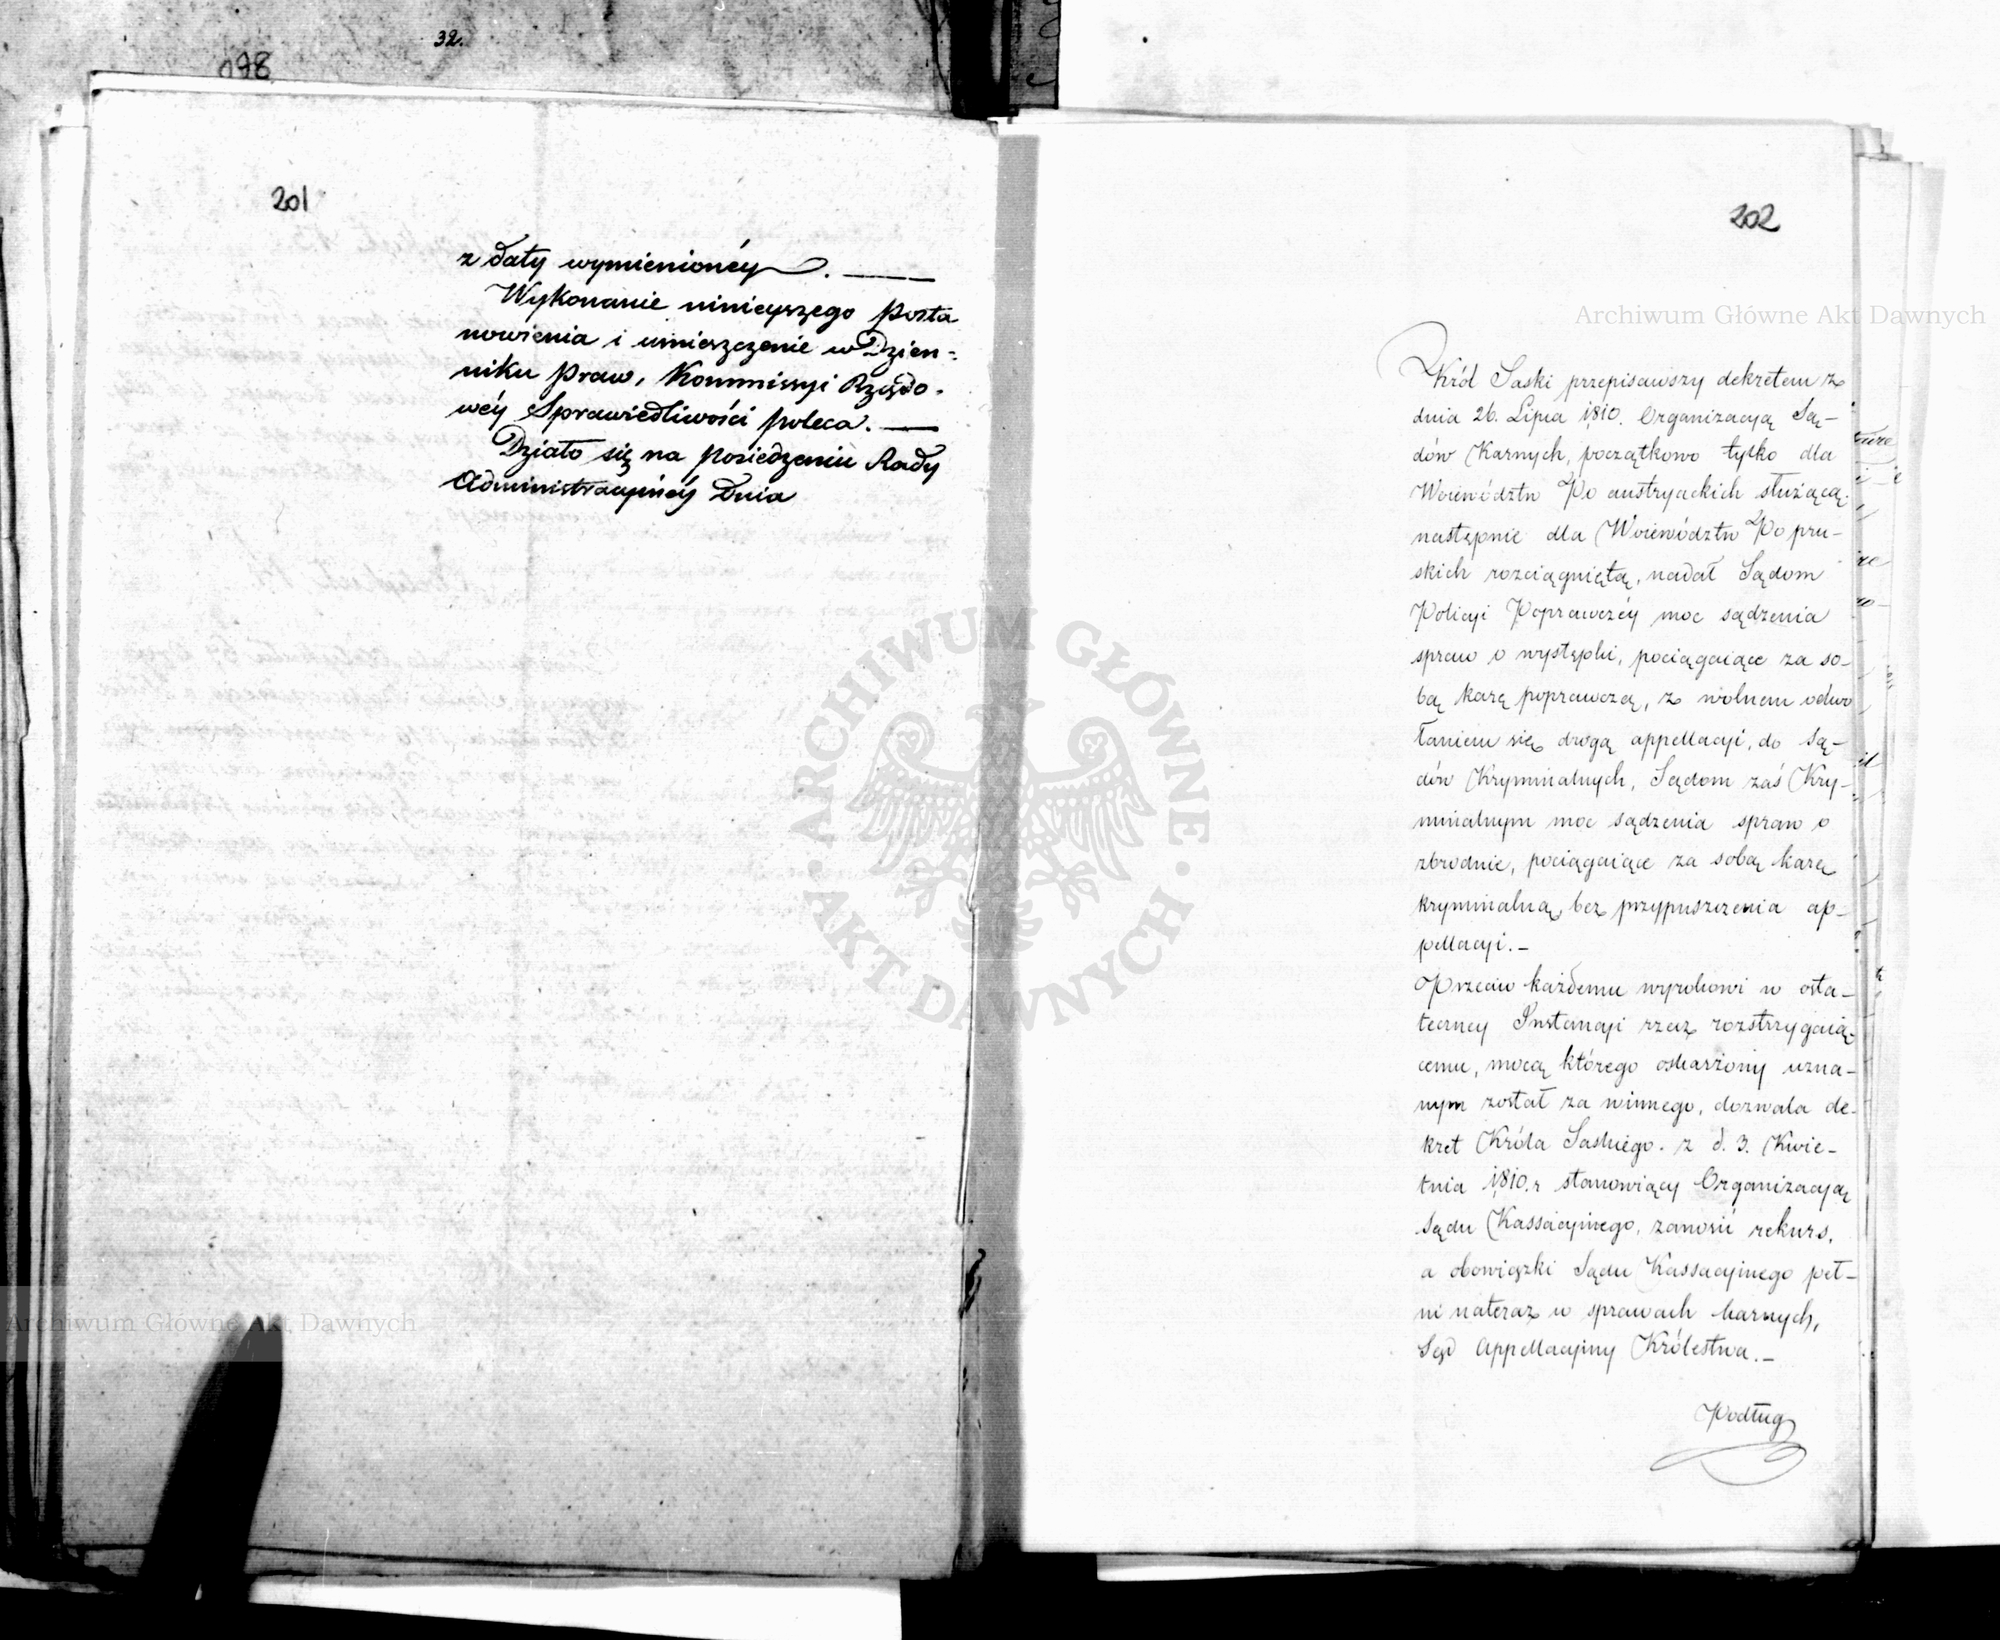 32.
098
201
z daty wymienionéy.
Wykonanie ninieyszego Posta
nowienia i umieszczenie w Dzien-
niku Praw, Kommissyi Rządo-
wéy Sprawiedliwości poleca.
Działo się na Posiedzeniu Rady
Administracyinéy dnia
202
Król Saski przepisawszy dekretem z
dnia 26. Lipca 1810. Organizacyją Są-
dów Karnych, początkowo tylko dla
Woiewództw Po austryackich służącą,
następnie dla Woiewództw Po pru-
skich rozciągniętą, nadał Sądom
Policyi Poprawczéy moc sądzenia
spraw o występki, pociągaiące za so-
bą karę poprawczą, z wolnem odwo
łaniem się drogą appellacyi, do Są-
dów Kryminalnych, Sądom zaś Kry-
minalnym moc sądzenia spraw o
zbrodnie, pociągaiące za sobą karę
kryminalną, bez przypuszczenia ap-
pellacyi.-
Przeciw każdemu wyrokowi w osta-
teczney Instancyi rzecz rozstrzygaią-
cemu, mocą którego oskarżony uzna-
nym został za winnego, dozwala de-
kret Króla Saskiego. z d. 3. Kwie-
tnia 1810. r stanowiący Organizacyją
Sądu Kassacyinego, zanosić rekurs,
a obowiązki Sądu Kassacyinego peł-
ni nateraz w sprawach karnych,
Sąd Appellacyiny Królestwa.-
Podług
Archiwum Główne Akt Dawnych
ARCHIWUM GŁÓWNE
AKT DAWNYCH
Archiwum Główne Akt Dawnych